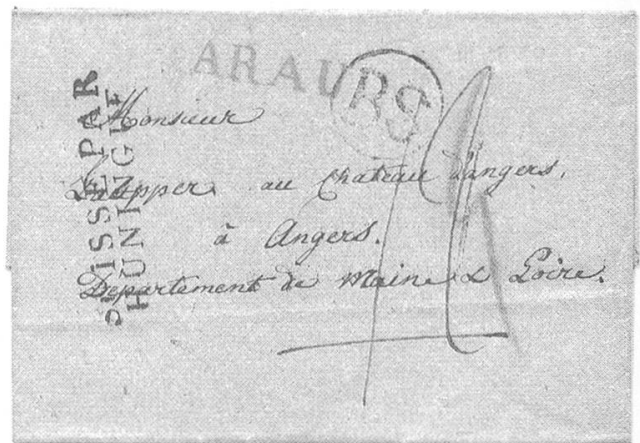 ARAU
RS
SUISSE PAR
HUNINGUE
Monsieur
Laupper au Chateau d'angers.
à Angers.
Departement de Maine & Loire.